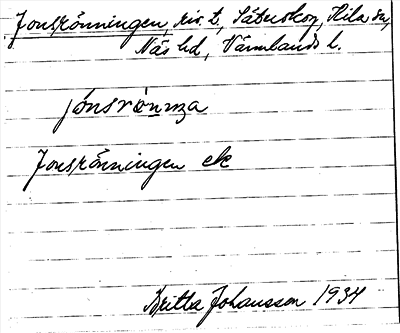 Jonsrönningen, riv. t. Säterskog, Kila sn,
Näs hd, Värmlands l.
Jonsrönningen ek
Britta Johansson 1934